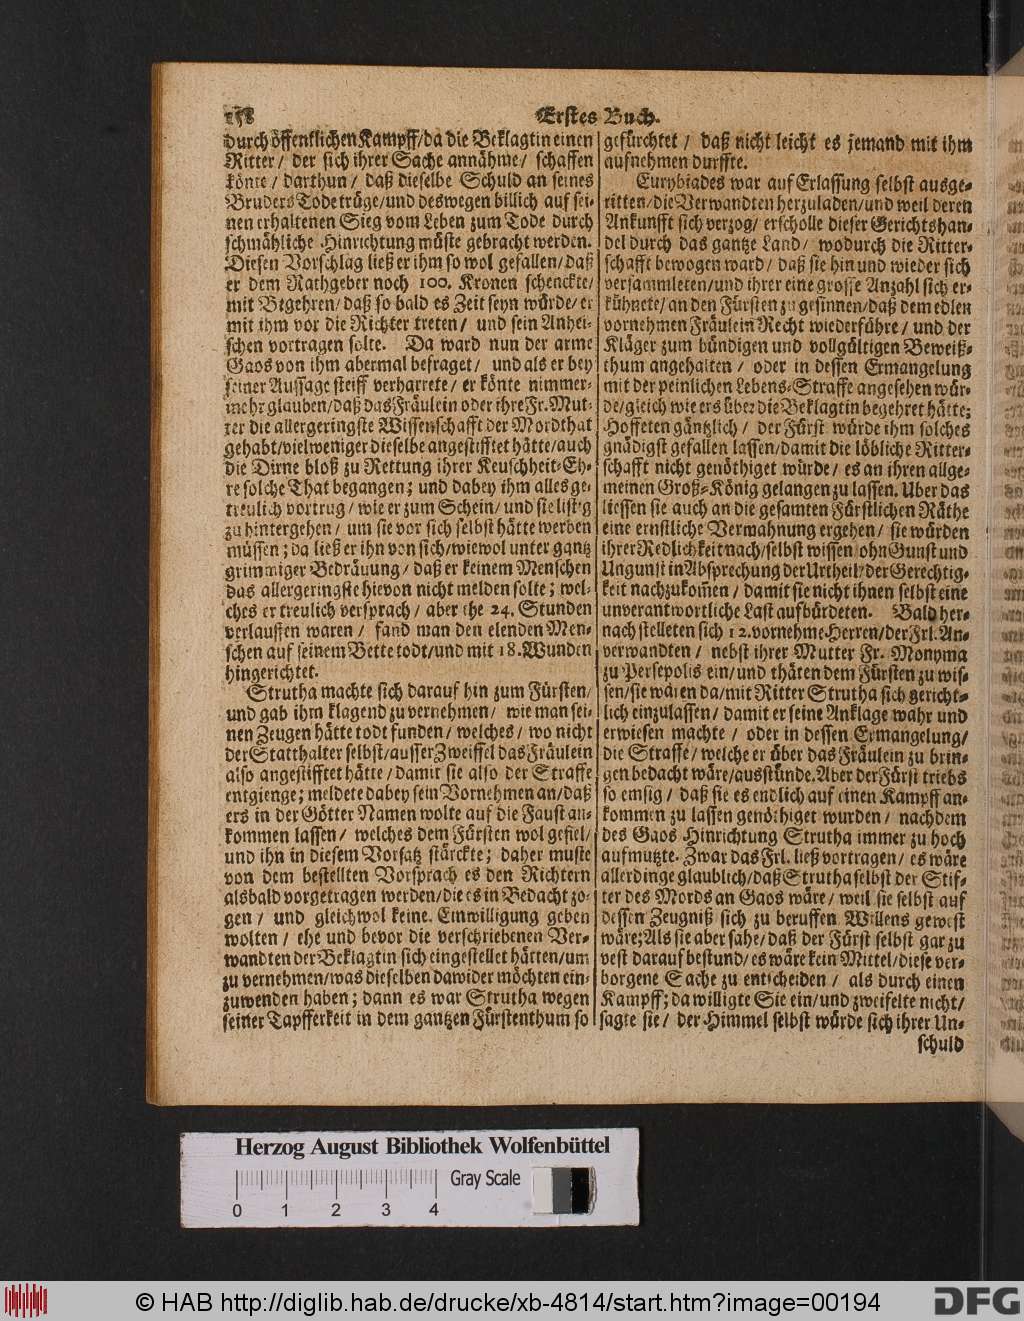 158
Erstes Buch.
durch öffentlichen Kampff/da die Beklagtin einen
Ritter/ der sich ihrer Sache annähme/ schaffen
könte/ darthun/ daß dieselbe Schuld an seines
Bruders Tode trüge/und deswegen billich auf sei-
nen erhaltenen Sieg vom Leben zum Tode durch
schmähliche Hinrichtung müste gebracht werden.
Diesen Vorschlag ließ er ihm so wol gefallen/daß
er dem Rathgeber noch 100. Kronen schenckte/
mit Begehren/daß so bald es Zeit seyn würde/er
mit ihm vor die Richter treten/ und sein Anhei-
schen vortragen solte. Da ward nun der arme
Gaos von ihm abermal befraget/ und als er bey
seiner Aussage steiff verharrete/er könte nimmer-
mehr glauben/daß das Fräulein oder ihre Fr. Mut-
ter die allergeringste Wissenschafft der Mordthat
gehabt/vielweniger dieselbe angestifftet hätte/auch
die Dirne bloß zu Rettung ihrer Keuschheit-Eh-
re solche That begangen; und dabey ihm alles ge-
treulich vortrug/wie er zum Schein/und sie listig
zu hintergehen/um sie vor sich selbst hätte werben
müssen; da ließ er ihn von sich/wiewol unter gantz
grimmiger Bedräuung/daß er keinem Menschen
das allergeringste hievon nicht melden solte; wel-
ches er treulich versprach/aber ehe 24. Stunden
verlauffen waren/ fand man den elenden Men-
schen auf seinem Bette todt/und mit 18. Wunden
hingerichtet.
Strutha machte sich darauf hin zum Fürsten/
und gab ihm klagend zu vernehmen/ wie man sei-
nen Zeugen hätte todt funden/welches/ wo nicht
der Statthalter selbst/ausser Zweiffel das Fräulein
also angestifftet hätte/damit sie also der Straffe
entgienge; meldete dabey sein Vornehmen an/daß
ers in der Götter Namen wolte auf die Faust an-
kommen lassen/ welches dem Fürsten wol gefiel/
und ihn in diesem Vorsatz stärckte; daher muste
von dem bestellten Vorsprach es den Richtern
alsbald vorgetragen werden/die es in Bedacht zo-
gen/ und gleichwol keine Einwilligung geben
wolten/ ehe und bevor die verschriebenen Ver-
wandten der Beklagtin sich eingestellet hätten/um
zu vernehmen/was dieselben dawider möchten ein-
zuwenden haben; dann es war Strutha wegen
seiner Tapfferkeit in dem gantzen Fürstenthum so
gefürchtet/ daß nicht leicht es jemand mit ihm
aufnehmen durffte.
Eurybiades war auf Erlassung selbst ausge-
ritten/die Verwandten herzuladen/und weil deren
Ankunfft sich verzog/ erscholle dieser Gerichtshan-
del durch das gantze Land/ wodurch die Ritter-
schafft bewogen ward/ daß sie hin und wieder sich
versammleten/und ihrer eine grosse Anzahl sich er-
kühnete/an den Fürsten zu gesinnen/daß dem edlen
vornehmen Fräulein Recht wiederführe/ und der
Kläger zum bündigen und vollgültigen Beweiß-
thum angehalten/ oder in dessen Ermangelung
mit der peinlichen Lebens-Straffe angesehen wür-
de/gleich wie ers über die Beklagtin begehret hätte;
Hoffeten gäntzlich/ der Fürst würde ihm solches
gnädigst gefallen lassen/damit die löbliche Ritter-
schafft nicht genöthiget würde/ es an ihren allge-
meinen Groß-König gelangen zu lassen. Uber das
liessen sie auch an die gesamten Fürstlichen Räthe
eine ernstliche Vermahnung ergehen/ sie würden
ihrer Redlichkeit nach/selbst wissen ohn Gunst und
Ungunst in Absprechung der Urtheil/der Gerechtig-
keit nachzukom̃en/damit sie nicht ihnen selbst eine
unverantwortliche Last aufbürdeten. Bald her-
nach stelleten sich 12. vornehme Herren/der Frl. An-
verwandten/ nebst ihrer Mutter Fr. Monyma
zu Persepolis ein/und thäten dem Fürsten zu wis-
sen/sie wären da/mit Ritter Strutha sich gericht-
lich einzulassen/damit er seine Anklage wahr und
erwiesen machte/ oder in dessen Ermangelung/
die Straffe/welche er über das Fräulein zu brin-
gen bedacht wäre/ausstünde. Aber der Fürst triebs
so emsig/ daß sie es endlich auf einen Kampff an-
kommen zu lassen genöthiget wurden/ nachdem
des Gaos Hinrichtung Strutha immer zu hoch
aufmutzte. Zwar das Frl. ließ vortragen/es wäre
allerdinge glaublich/daß Strutha selbst der Stif-
ter des Mords an Gaos wäre/ weil sie selbst auf
dessen Zeugniß sich zu beruffen Willens gewest
wäre; Als sie aber sahe/daß der Fürst selbst gar zu
vest darauf bestund/es wäre kein Mittel/diese ver-
borgene Sache zu entscheiden/ als durch einen
Kampff; da willigte Sie ein/und zweifelte nicht/
sagte sie/ der Himmel selbst würde sich ihrer Un-
schuld
Herzog August Bibliothek Wolfenbüttel
Gray Scale
0 1 2 3 4
© HAB http://diglib.hab.de/drucke/xb-4814/start.htm?image=00194
DFG